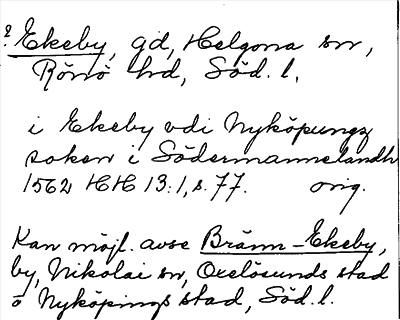 ? Ekeby, gd, Helgona sn,
Rönö hd, Söd. l.
i Ekeby vdi Nyköpungz
soken i Södermannelandh
1562 HH 13:1, s. 77. orig.
Kan möjl. avse Bränn-Ekeby,
by, Nikolai sn, Oxelösunds stad
o Nyköpings stad, Söd. l.